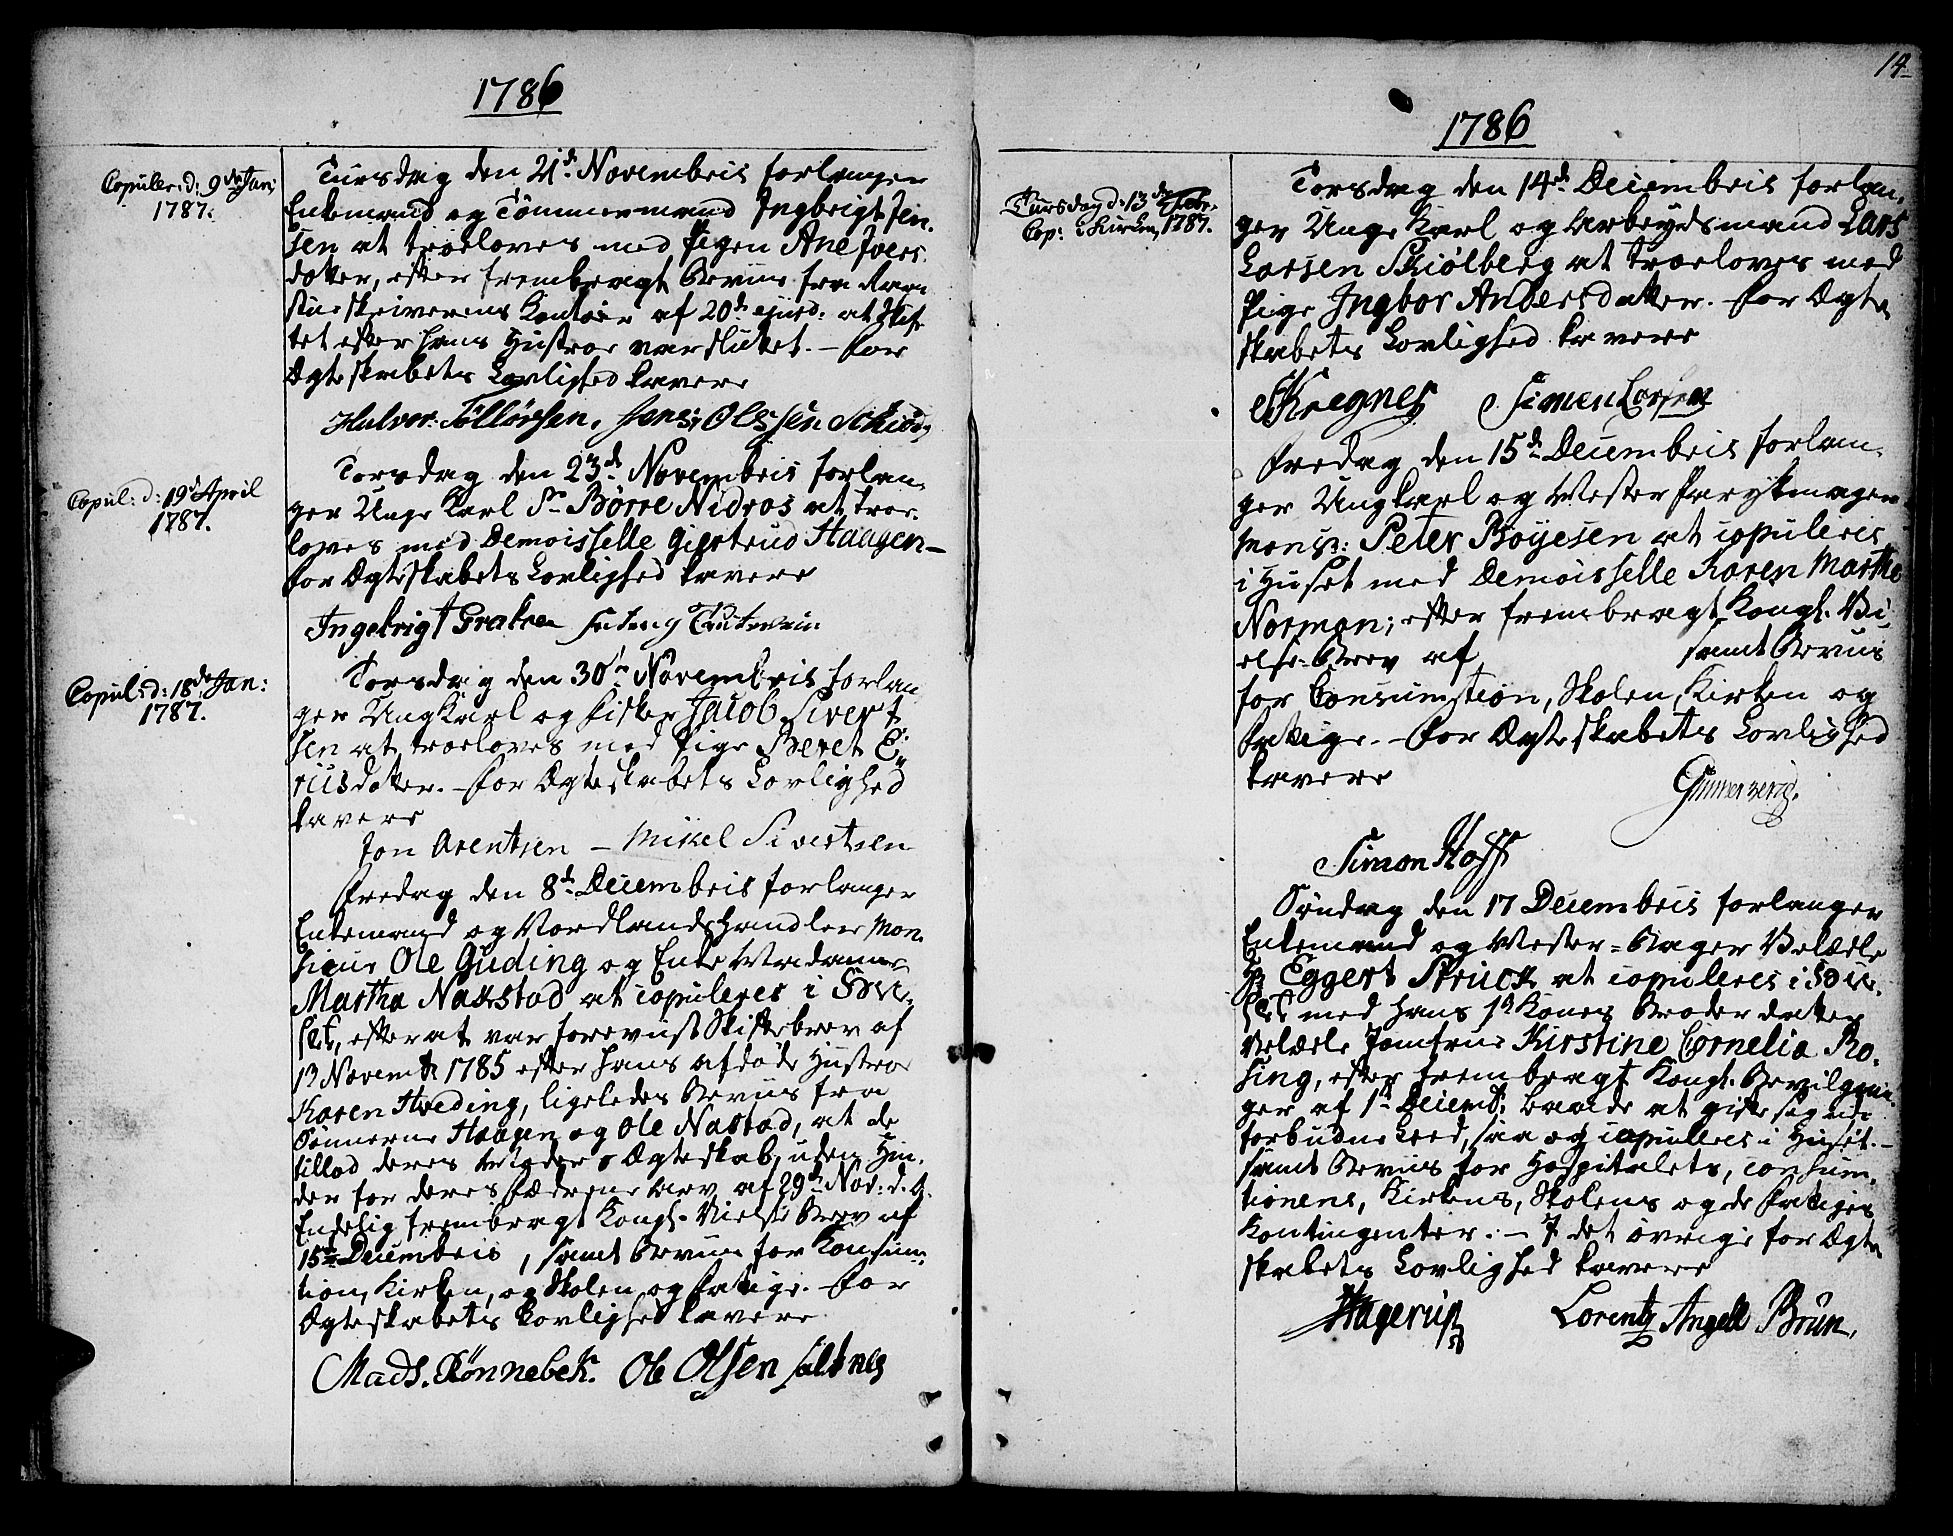 1786
Copuler: d: 9de Jan:
1787.
Tirsdag den 21de Novembris forlanger
Enkemand og Tømmermand Ingbrigt Jen,
sen at troeloves med Pigen Ane Ivers
datter, efter frembragt Beviis fra Raad
stue skriverens Kontoir af 20de ejusd: at Skif,
tet efter hans Hustroe var sluttet. – For
Ægteskabets Lovlighed kavere
Halvor Töllörsen, Jens Olssen
Copul: d: 19de April
1787.
Torsdag den 23de Novembris forlan,
ger Unge Karl Sr Börre Nidros at troe,
loves med Demoisselle Giertrud Haagen –
for Ægteskabets Lovlighed kavere
Ingebrigt
Copul: d: 18de Jan:
1787.
Torsdag den 30te Novembris forlan
ger Ungkarl og Fisker Jacob Sivert
sen at troeloves med Pige Beret E,
riisdatter. – For Ægteskabets Lovlighed
kavere
Jon Arentsen – Mikel Sivertsen
Fredag den 8de Decembris forlanger
Enkemand og Nordlandshandler Mon,
sieur Ole Guding og Enke Madame
Martha Naustad at copuleres i
efter at var foreviist Skiftebrev af
13 Novembr 1785 efter hans afdøde Hustroe
Karen Hveding, ligeledes Beviis fra
Sønnerne Haagen og Ole Nastad, at de
tillod deres Moders Ægteskab, uden Hin,
der for deres Fædrene Arv af 29de Nov: d. A.
Endelig frembragt Kongl. Vielse Brev af
15de Decembris , samt Beviis for Konsum,
tion, Kirken, og Skolen og Fattige. – For
Ægteskabets Lovlighed kavere
Mads. Rönnebek. Ole Olsen Saltnes
14
1786
Tirsdag d: 13de Febr.
Cop: i Kirken, 1787.
Torsdag den 14de Decembris forlan,
ger Unge Karl og Arbeydsmand Lars
Larsen Skiölberg at troeloves med
Pige Ingbor Andersdatter. – For Ægte
skabets Lovlighed kavere
Simen Larsen
Fredag den 15de Decembris forlan,
ger Ungkarl og Mester Parykmager
Monsr: Peter Böyesen at copuleres
i Huset med Demoisselle Karen Marthe
Norman; efter frembragt Kongl. Vi,
else-Brev af samt Beviis
for Consumtion, Skolen, Kirken og
Fattige. – For Ægteskabets Lovlighed
kavere
Simon Hoff
Søndag den 17 Decembris forlanger
Enkemand og Mester-Bager Velædle
Hr Eggert Struck at copuleres i
med hans 1ste Kones Broder datter
Velædle Jomfrue Kirstine Cornelia Ro,
sing, efter frembragt Kongl. Bevilgnin,
ger af 1ste Decemb: baade at gifte sig udi
forbudne Leed, saa og copuleres i Huset. –
samt Beviis for Hospitalets, Consum,
tionens, Kirkens, Skolens og de Fattiges
Kontingenter. – I det øvrige for Ægte
skabets Lovlighed kavere
Hagerup Lorentz Angell Brun.